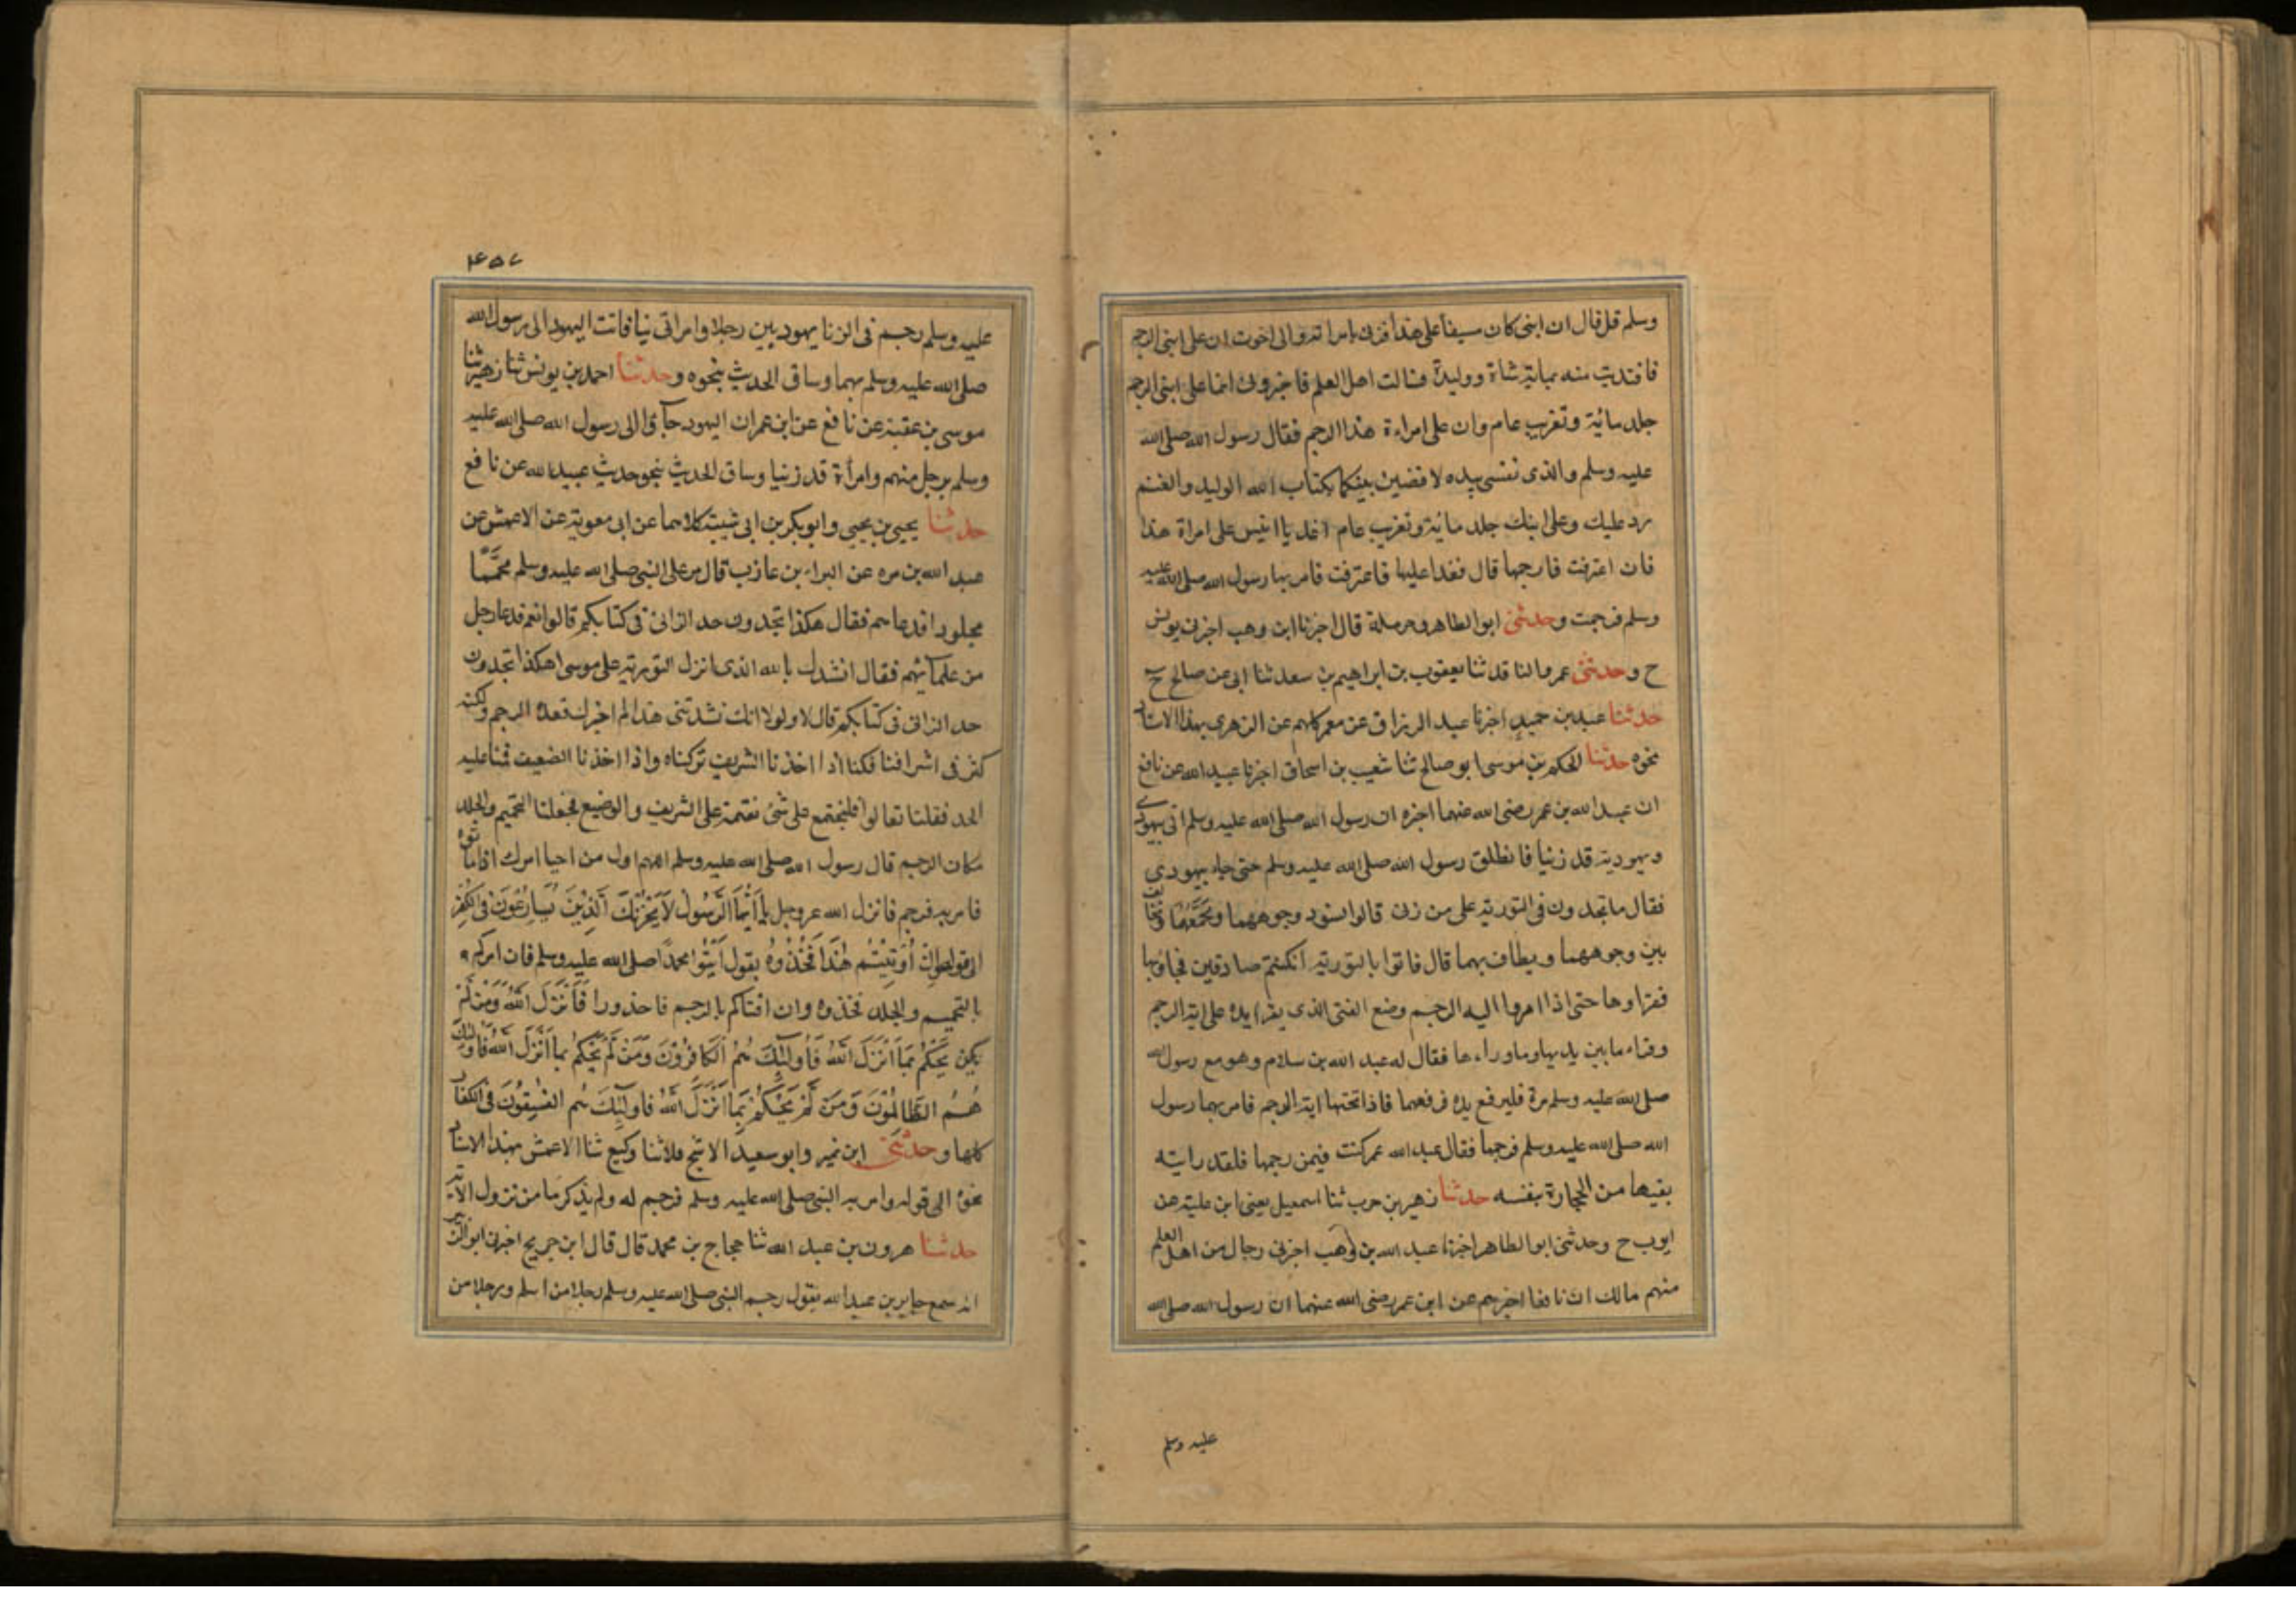 وسلم قل قال ان ابنى كان عسيفا على هذا فزنى بامراته وانى اخبرت ان على ابنى الرجم
فافتديت منه بماية شاة ووليدة فسالت اهل العلم فاخبرونى انما على ابنى الرجم
جلد مائية وتغريب عام وان على امراءة هذا الرجم فقال رسول الله صلى الله
عليه وسلم والذى نفسى بيده لاقضين بينكما بكتاب الله الوليد والغنم
رد عليك وعلى ابنك جلد مائية وتغريب عام اغد يا انيس على امراة هذا
فان اعترفت فارجمها قال فغدا عليها فاعترفت فامر بها رسول الله صلى الله عليه
وسلم فرجمت وحدثنى ابو الطاهر وحرملة قال اخبرنا ابن وهب اخبرنى يونس
ح وحدثنى عمرو الناقد ثنا يعقوب بن ابراهيم بن سعد ثنا ابى عن صالح ح
حدثنا عبد بن حميد اخبرنا عبد الرزاق عن معمر كلهم عن الزهرى بهذا الاسناد
نحوه حدثنا الحكم بن موسى ابو صالح ثنا شعيب بن اسحاق اخبرنا عبيد الله عن نافع
ان عبد الله بن عمر رضى الله عنهما اخبره ان رسول الله صلى الله عليه وسلم اتى بيهودى
ويهودية قد زنيا فانطلق رسول الله صلى الله عليه وسلم حتى جاء يهودى
فقال ما تجدون فى التورية على من زنى قالوا نسود وجوههما ونحممهما ونخالف
بين وجوههما ويطاف بهما قال فاتوا بالتورية ان كنتم صادقين فجاؤ بها
فقراوها حتى اذا امروا الية الرجم وضع الفتى الذى يقرا يده على اية الرجم
وقراء ما بين يديها وما وراءها فقال له عبد الله بن سلام وهو مع رسول الله
صلى الله عليه وسلم مرة فليرفع يده فرفعهما فاذا تحتها اية الرجم فامر بهما رسول
الله صلى الله عليه وسلم فرجمها فقال عبد الله عمر كنت فيمن رجمها فلقد رايته
يقيها من الحجارة بنفسه حدثنا زهير بن حرب ثنا اسمعيل يعنى ابن علية عن
ايوب ح وحدثنى ابو الطاهر اخبرنا عبد الله بن وهب اخبرنى رجال من اهل العلم
منهم مالك ان نافعا اخبرهم عن ابن عمر رضى الله عنهما ان رسول الله صلى الله
عليه وسلم
٤٥٧
عليه وسلم رجم فى الزنا يهوديين رجلا وامراة زنيا فاتت اليهود الى رسول الله
صلى الله عليه وسلم بهما وساق الحديث بنحوه وحدثنا احمد بن يونس ثنا زهير ثنا
موسى بن عقبة عن نافع عن ابن عمر ان اليهود جآؤا الى رسول الله صلى الله عليه
وسلم برجل منهم وامرأة قد زنيا وساق الحديث بنحو حديث عبيد الله عن نافع
حدثنا يحيى بن يحيى وابو بكر بن ابى شيبة كلاهما عن ابى معوية عن الاعمش عن
عبد الله بن مره عن البراء بن عازب قال مر على النبى صلى الله عليه وسلم محمّما
مجلودا فدعاهم فقال هكذا تجدون حد الزانى فى كتابكم قالوا نعم فدعا رجل
من علمآئهم فقال انشدك بالله الذى انزل التورية على موسى اهكذا تجدون
حد الزانى فى كتابكم قال لا ولولا انك نشدتنى هذا لم اخبرك نجده الرجم ولكنه
كثر فى اشرافنا فكنا اذا اخذنا الشريف تركناه واذا اخذنا الضعيف قمنا عليه
الحد فقلنا تعالوا فلنجتمع على شئ نقيمه على الشريف والوضيع فجعلنا التحميم والجلد
مكان الرجم قال رسول الله صلى الله عليه وسلم اللهم اول من احيا امرك اذ اماتوه
فامر به فرجم فانزل الله عز وجل يا اَيُّهَا الرَّسُولُ لَا يَحْزُنْكَ الَّذِيْنَ يُسَارِعُوْنَ فِى الْكُفْرِ
الى قوله اِنْ اُوْتِيْتُمْ هٰذَا فَخُذُوْهُ يقول اَيْتُوا محمدًا صلى الله عليه وسلم فان امركم
بالتحميم والجلد فخذوه وان افتاكم بالرجم فاحذروا فَاَنْزَلَ اللهُ وَمَنْ لَمْ
يكن يَحْكُمْ بِمَا اَنْزَلَ اللهُ فَاُولٰئِكَ هُمُ الْكَافِرُوْنَ وَمَنْ لَمْ يَحْكُمْ بِمَا اَنْزَلَ اللهُ فَاُولٰئِكَ
هُمُ الظَّالِمُوْنَ وَمَنْ لَمْ يَحْكُمْ بِمَا اَنْزَلَ اللهُ فَاُولٰئِكَ هُم الفٰسِقُوْنَ فى الكفار
كلها وحدثنى ابن نمير وابو سعيد الاشج قالا ثنا وكيع ثنا الاعمش بهذا الاسناد
نحوه الى قوله وامر به النبى صلى الله عليه وسلم فرجم له ولم يذكر ما من نزول الآية
حدثنا هرون بن عبد الله ثنا حجاج بن محمد قال قال ابن جريج اخبرنى ابو الزبير
انه سمع جابر بن عبد الله يقول رجم النبى صلى الله عليه وسلم رجلا من اسلم ورجلا من